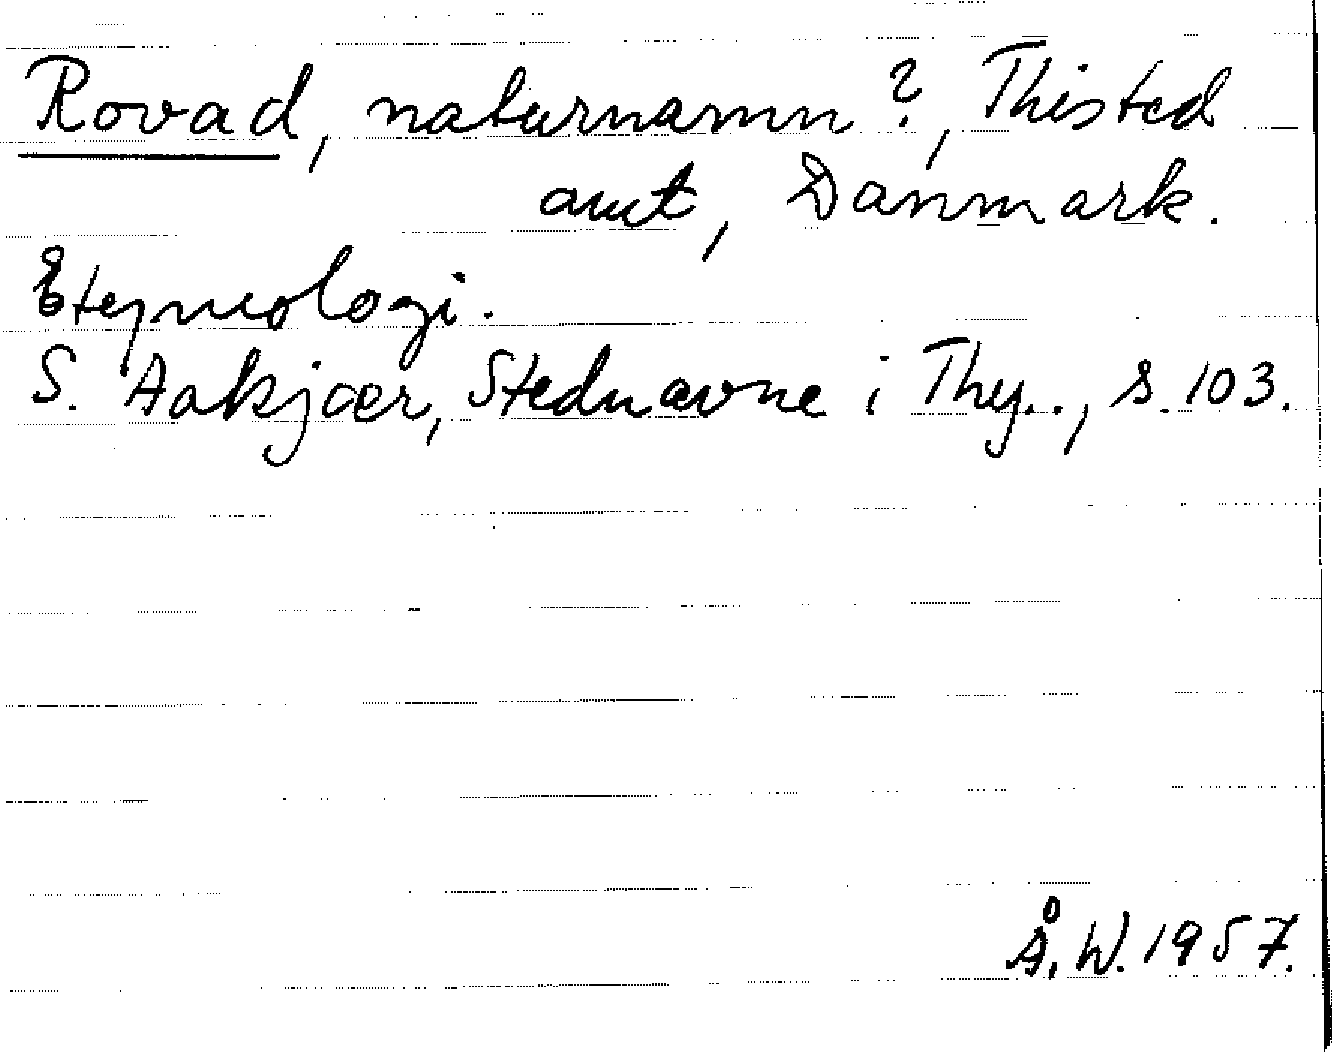 Rovad, naturnamn?, Thisted
amt, Danmark.
Etymologi.
S. Aakjær, Stednavne i Thy.., s. 103.
Å. W. 1957.